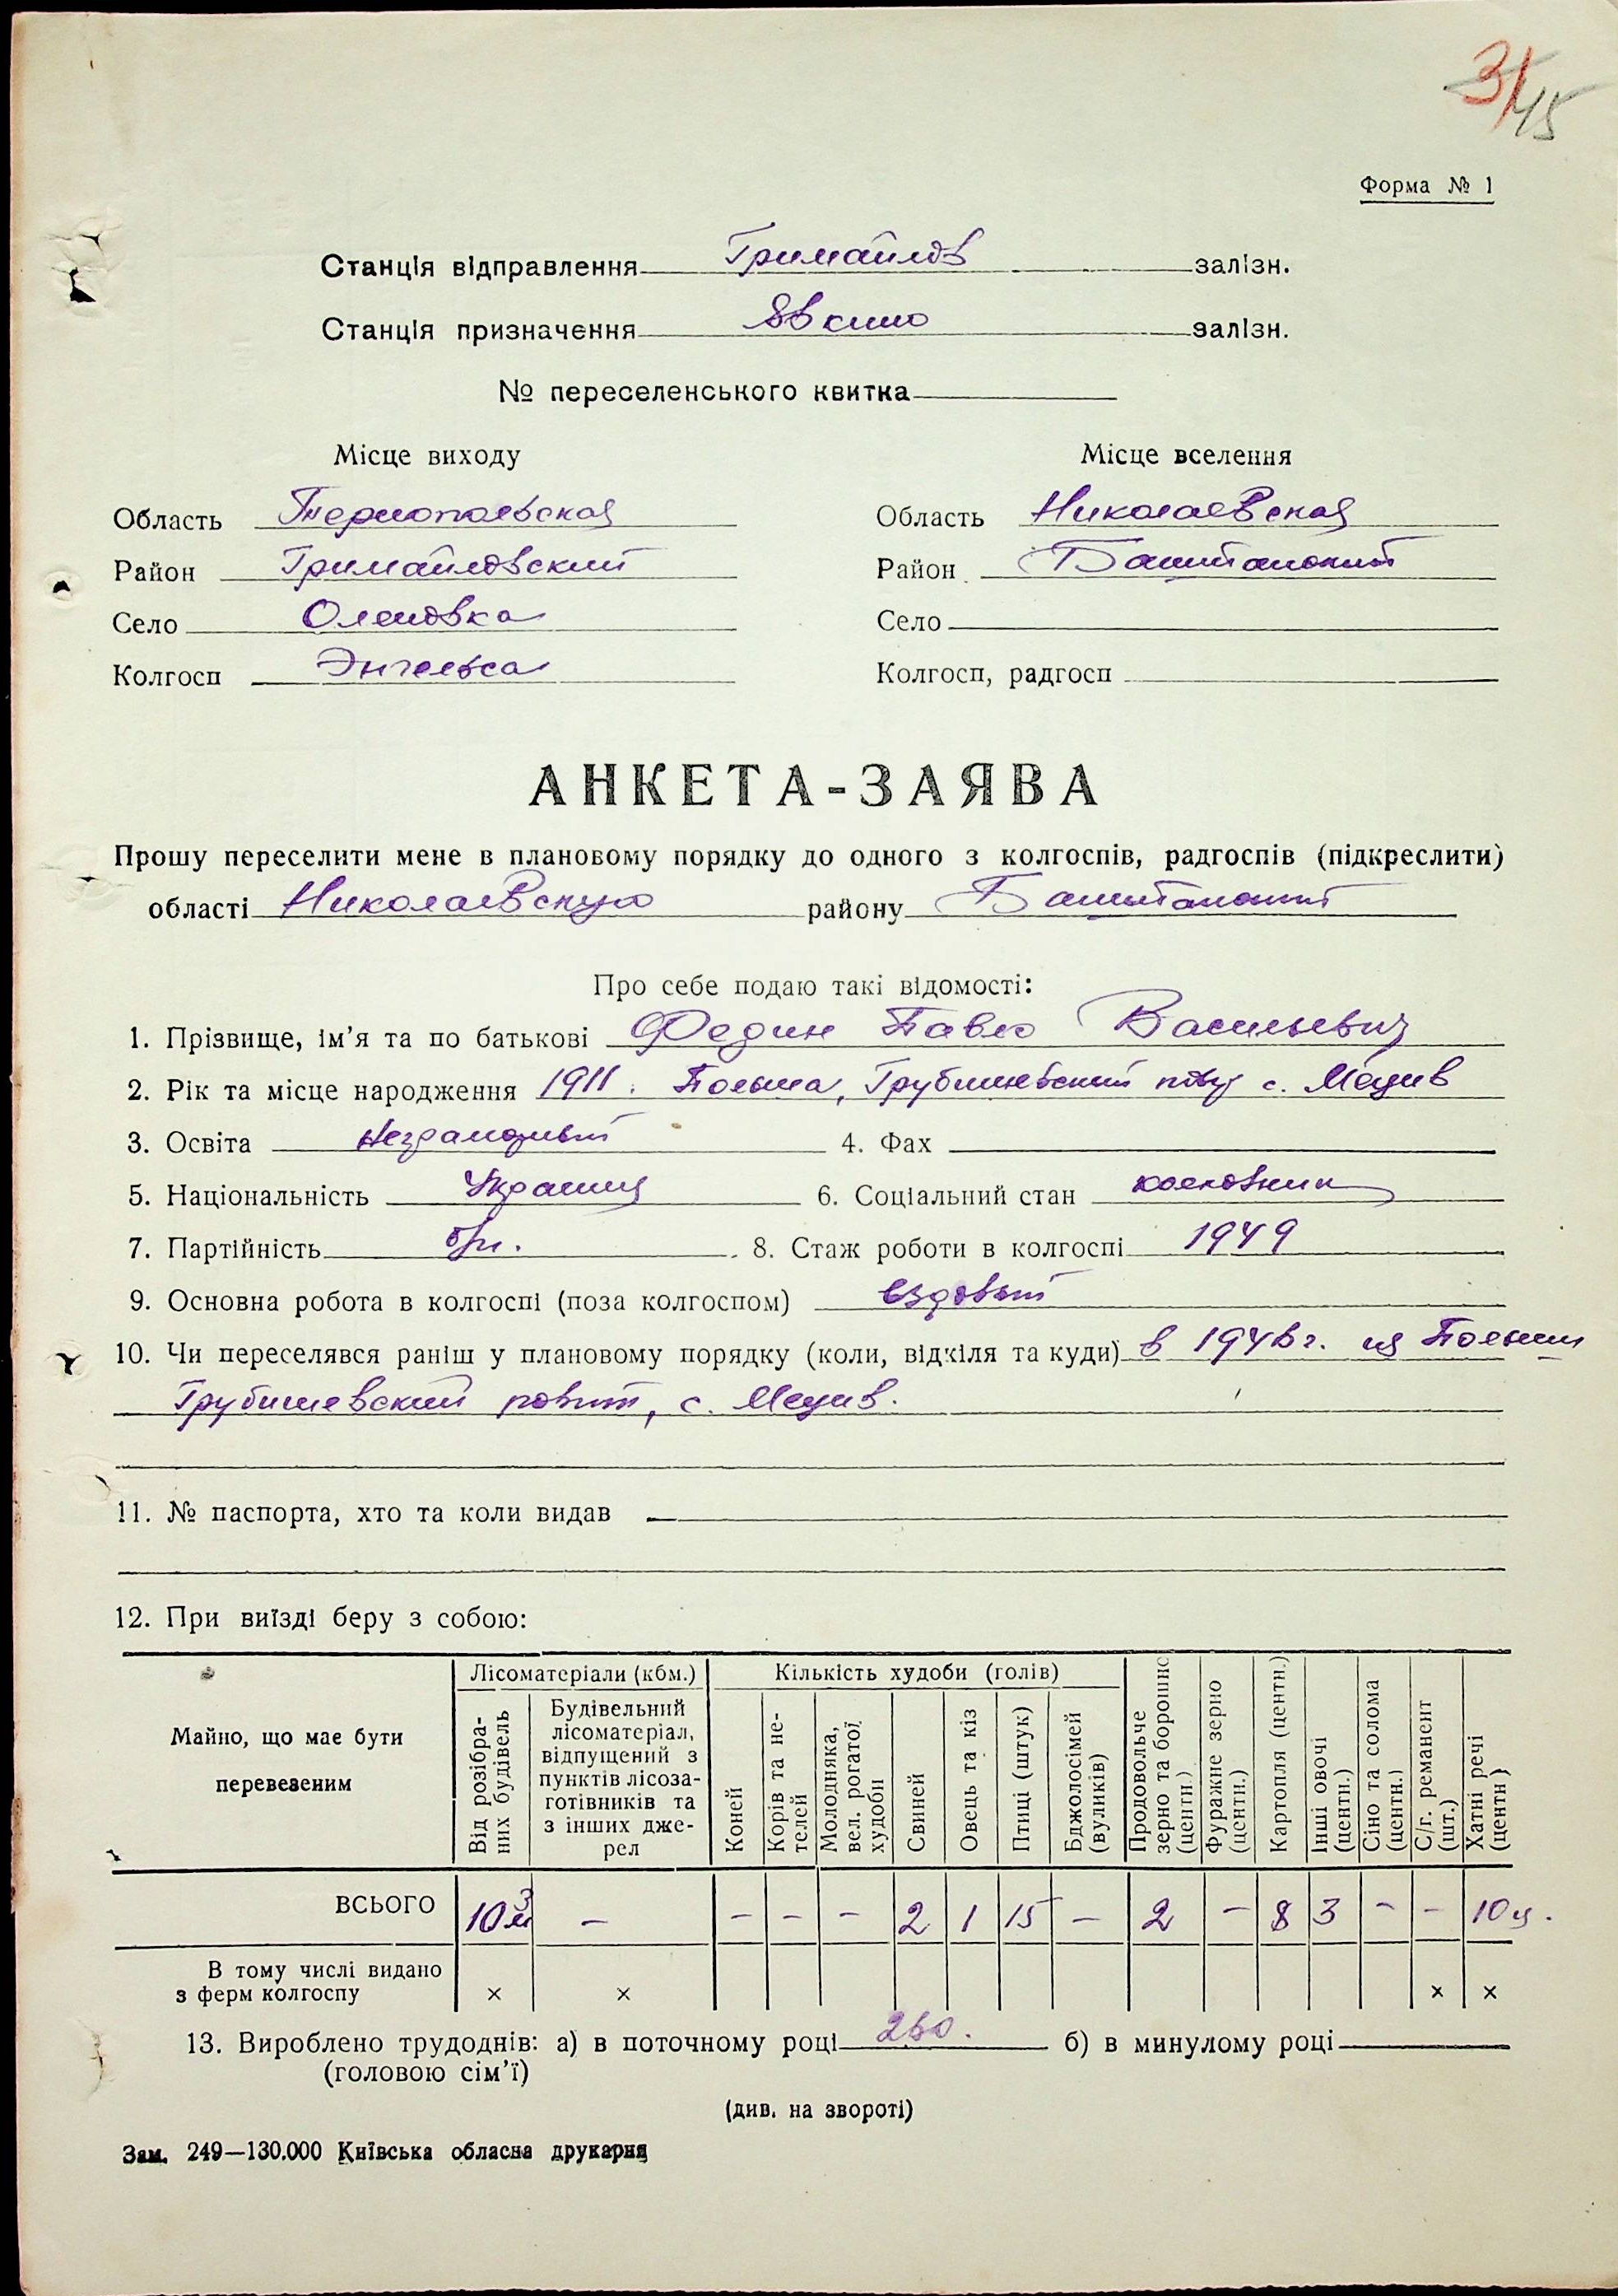 3/45
Форма № 1
Станція відправлення Гримайлов залізн.
Станція призначення Явкино залізн.
№ переселенського квитка
Місце виходу Місце вселення
Область Тернопольская Область Николаевская
Район Гримайловский Район Баштанский
Село Оленовка Село
Колгосп Энгельса Колгосп, радгосп
АНКЕТА-ЗАЯВА
Прошу переселити мене в плановому порядку до одного з колгоспів, радгоспів (підкреслити)
області Николаевскую району Баштанский
Про себе подаю такі відомості:
1. Прізвище, ім'я та по батькові Федин Павло Васильевич
2. Рік та місце народження 1911. Польша, Грубишевский повіт с. Мецив
3. Освіта неграмотный 4. Фах
5. Національність Украинец 6. Соціальний стан колховник
7. Партійність б/п. 8. Стаж роботи в колгоспі 1949
9. Основна робота в колгоспі (поза колгоспом) ездовый
10. Чи переселявся раніш у плановому порядку (коли, відкіля та куди) в 1946 г. из Польши
Грубишевский повит, с. Мецив.
11. № паспорта, хто та коли видав
12. При виїзді беру з собою:
Майно, що має бути перевезеним
Лісоматеріали (кбм.)
Кількість худоби (голів)
Від розібраних будівель
Будівельний лісоматеріал, відпущений з пунктів лісозаготівників та з інших джерел
Коней
Корів та нетелей
Молодняка, вел. рогатої худоби
Свиней
Овець та кіз
Птиці (штук)
Бджолосімей (вуликів)
Продовольче зерно та борошно (центн.)
Фуражне зерно (центн.)
Картопля (центн.)
Інші овочі (центн.)
Сіно та солома (центн.)
С/г. реманент (шт.)
Хатні речі (центн)
ВСЬОГО 10 м³ – – – – 2 1 15 – 2 – 8 3 – – 10 ц.
В тому числі видано з ферм колгоспу × × × ×
13. Вироблено трудоднів: а) в поточному році 260. б) в минулому році
(головою сім'ї)
(див. на звороті)
Зам. 249—130.000 Київська обласна друкарня